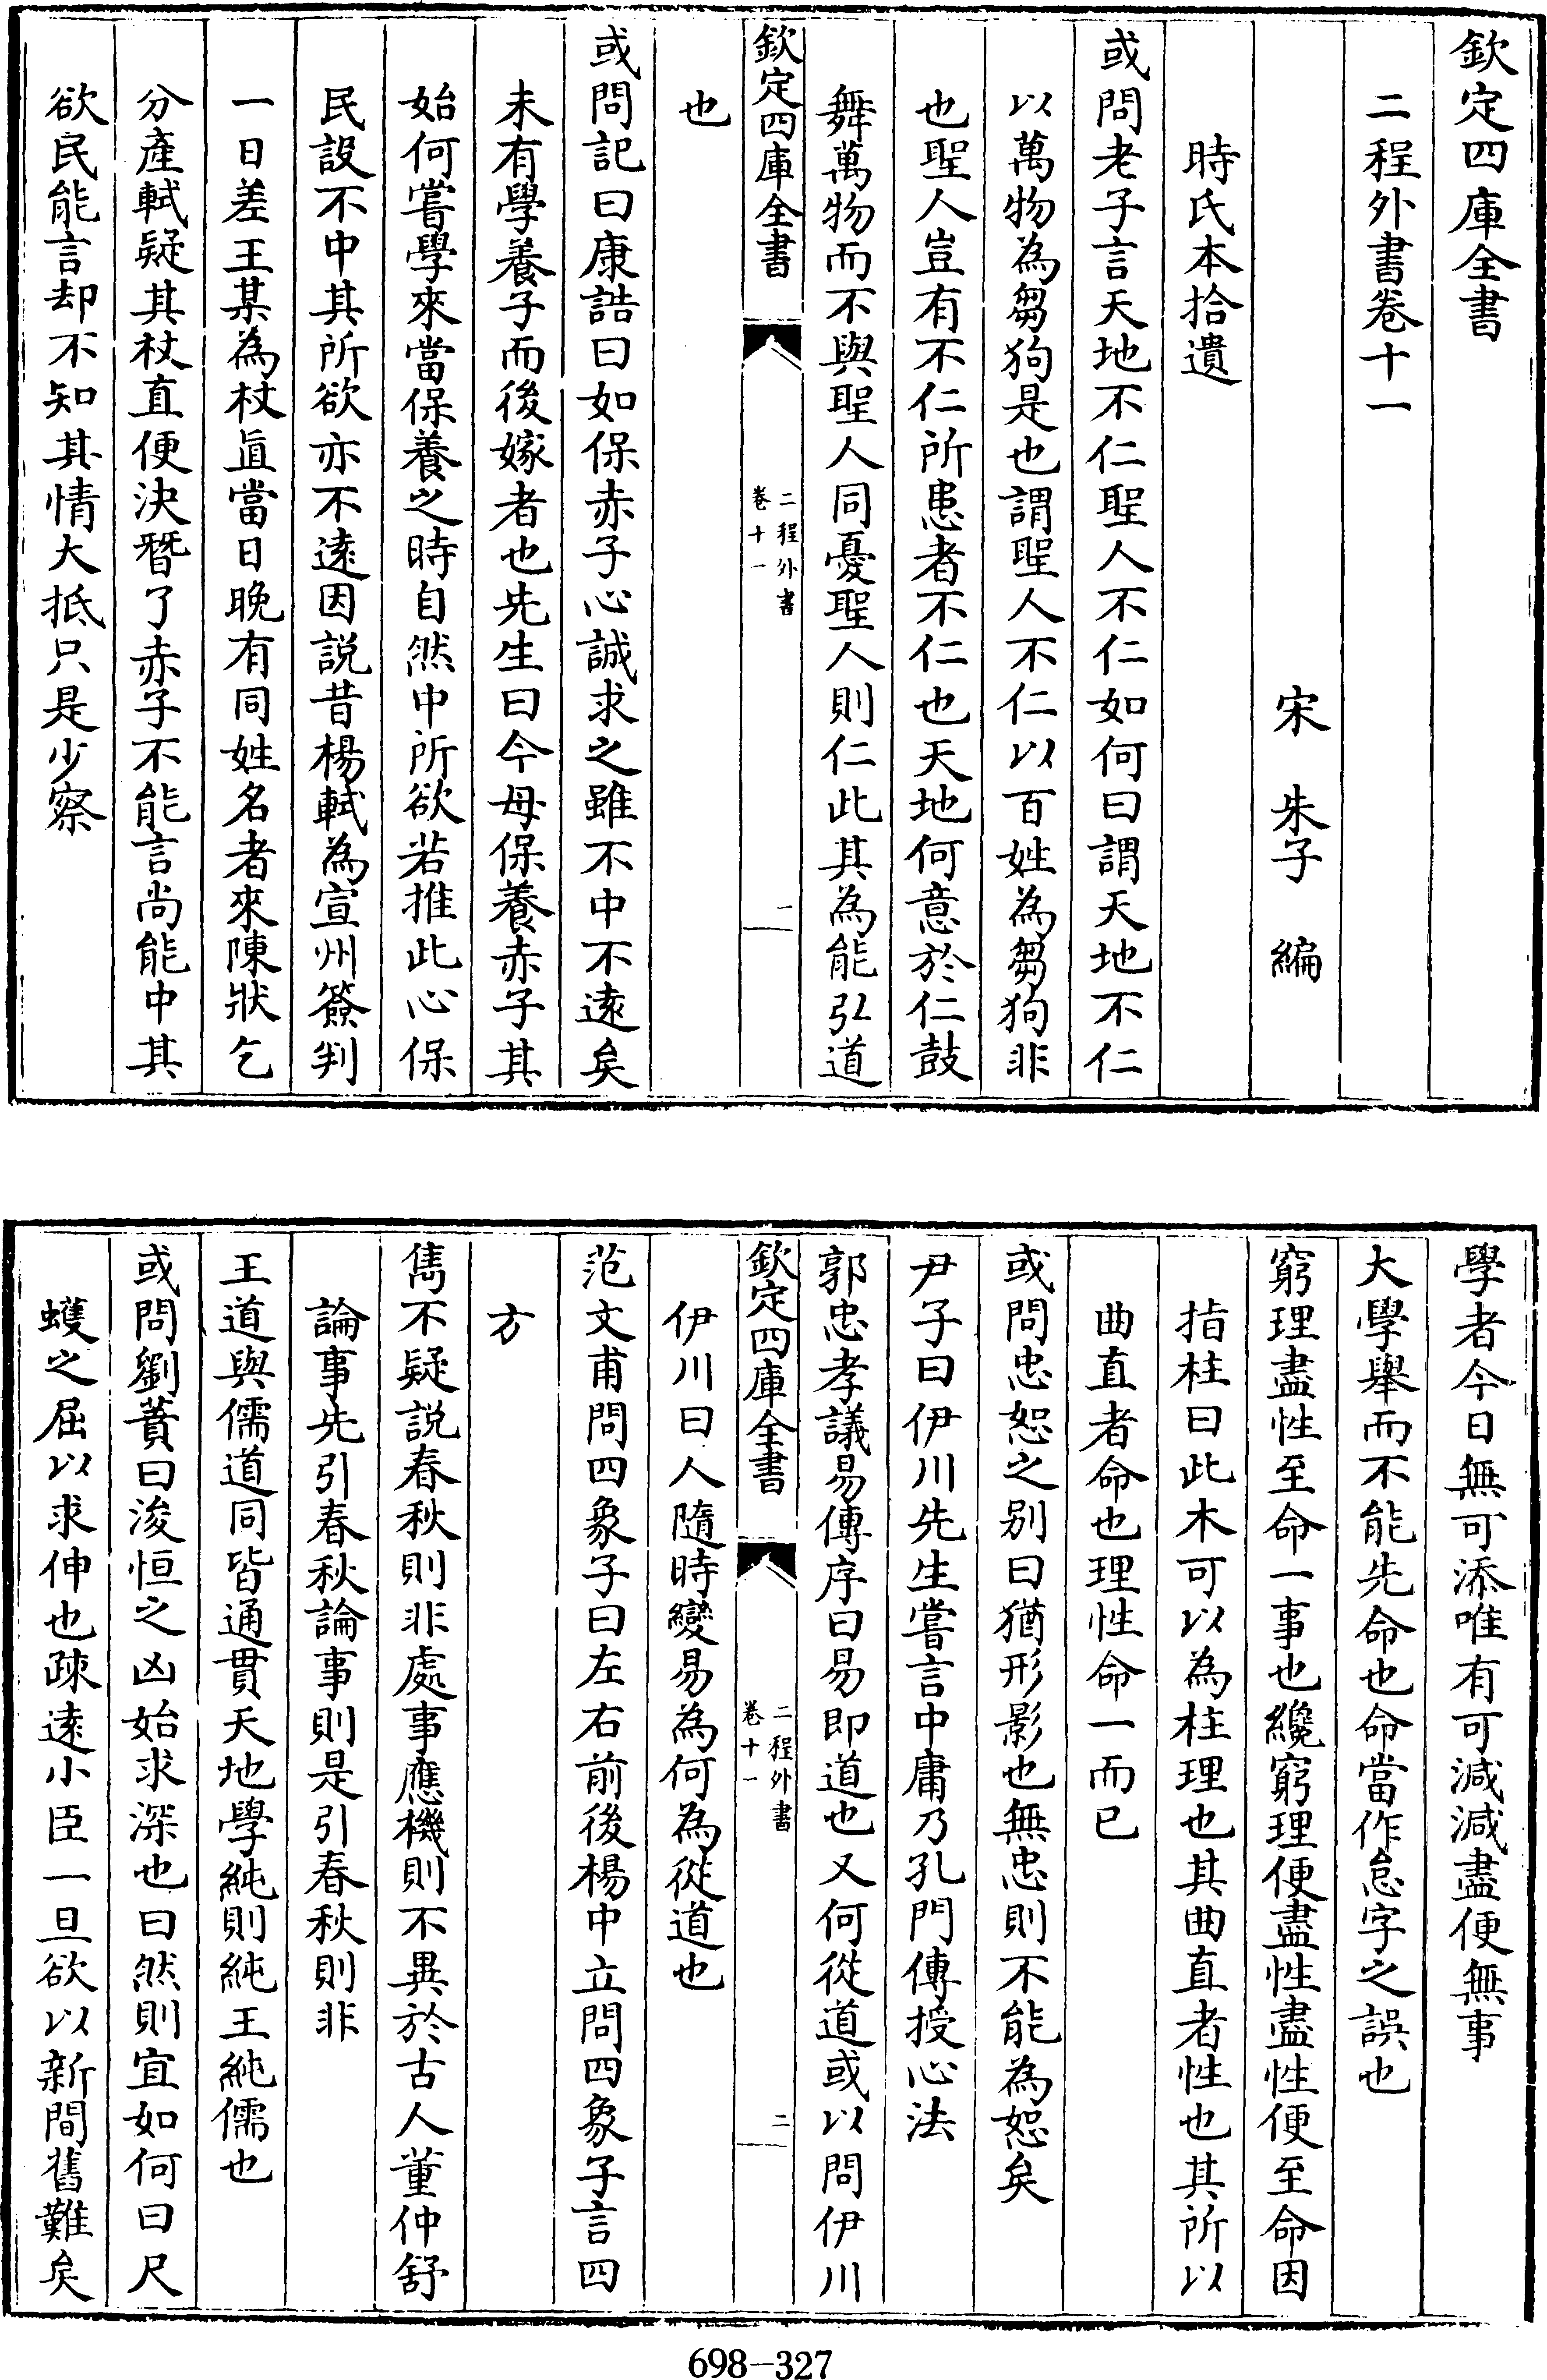 欽定四庫全書
二程外書卷十一
宋 朱子 編
時氏本拾遺
或問老子言天地不仁聖人不仁如何曰謂天地不仁
以萬物為芻狗是也謂聖人不仁以百姓為芻狗非
也聖人豈有不仁所患者不仁也天地何意於仁鼓
舞萬物而不與聖人同憂聖人則仁此其為能弘道
欽定四庫全書
二程外書
卷十一
一
也
或問記曰康誥曰如保赤子心誠求之雖不中不逺矣
未有學養子而後嫁者也先生曰今母保養赤子其
始何嘗學來當保養之時自然中所欲若推此心保
民設不中其所欲亦不逺因説昔楊軾為宣州簽判
一日差王某為杖直當日晚有同姓名者來陳狀乞
分產軾疑其杖直便決替了赤子不能言尚能中其
欲民能言却不知其情大抵只是少察
學者今日無可添唯有可減減盡便無事
大學舉而不能先命也命當作怠字之誤也
窮理盡性至命一事也纔窮理便盡性盡性便至命因
指柱曰此木可以為柱理也其曲直者性也其所以
曲直者命也理性命一而已
或問忠恕之别曰猶形影也無忠則不能為恕矣
尹子曰伊川先生嘗言中庸乃孔門傳授心法
郭忠孝議易傳序曰易即道也又何從道或以問伊川
欽定四庫全書
二程外書
卷十一
二
伊川曰人隨時變易為何為從道也
范文甫問四象子曰左右前後楊中立問四象子言四
方
雋不疑説春秋則非處事應機則不異於古人董仲舒
論事先引春秋論事則是引春秋則非
王道與儒道同皆通貫天地學純則純王純儒也
或問劉蕡曰浚恒之凶始求深也曰然則宜如何曰尺
蠖之屈以求伸也疎逺小臣一旦欲以新間舊難矣
698-327